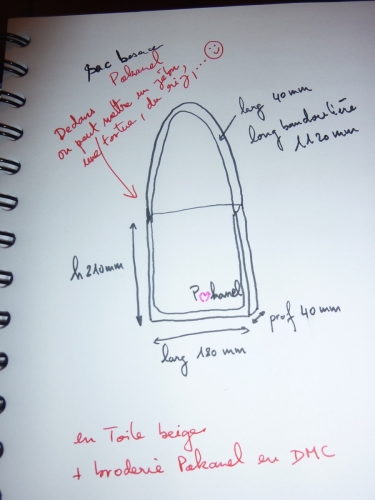 Sac besace
Pokanel
Dedans
on peut mettre un jean,
une tortue, du riz, ...
larg 40mm
long bandoulière
1120mm
h 210mm
P♡kanel
prof 40mm
larg 180mm
en Toile beige
+ broderie Pokanel en DMC